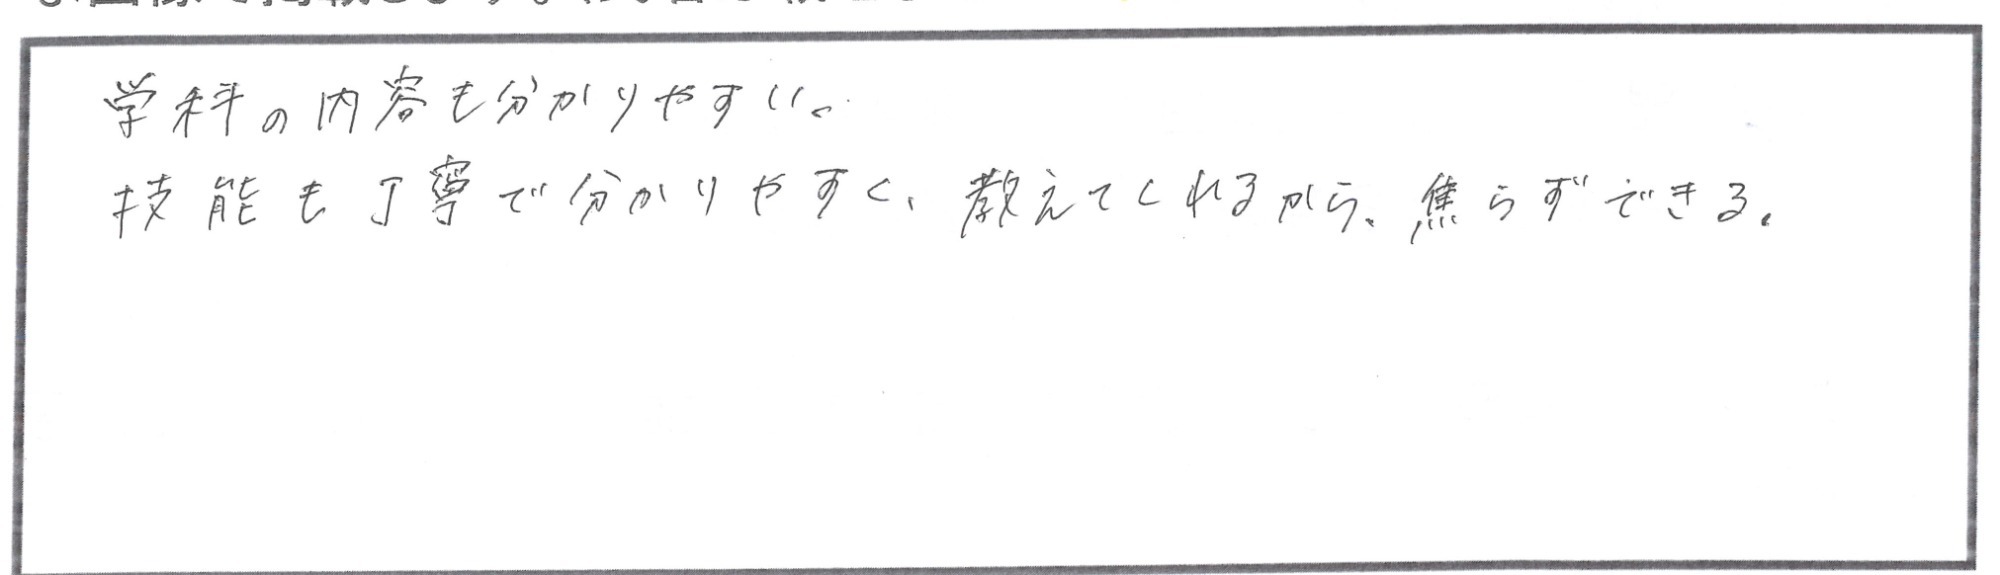 学科の内容も分かりやすい。
技能も丁寧で分かりやすく、教えてくれるから、焦らずできる。